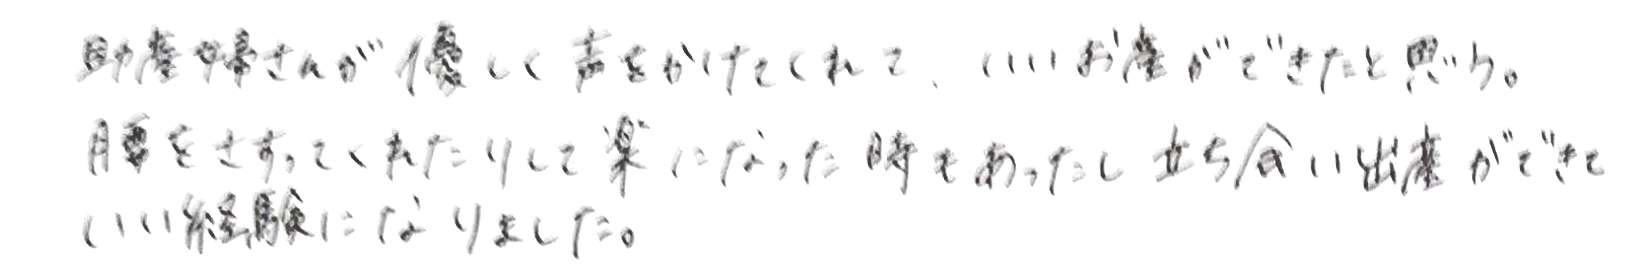 助産婦さんが優しく声をかけてくれて、いいお産ができたと思う。
腰をさすってくれたりして楽になった時もあったし立ち会い出産ができて
いい経験になりました。